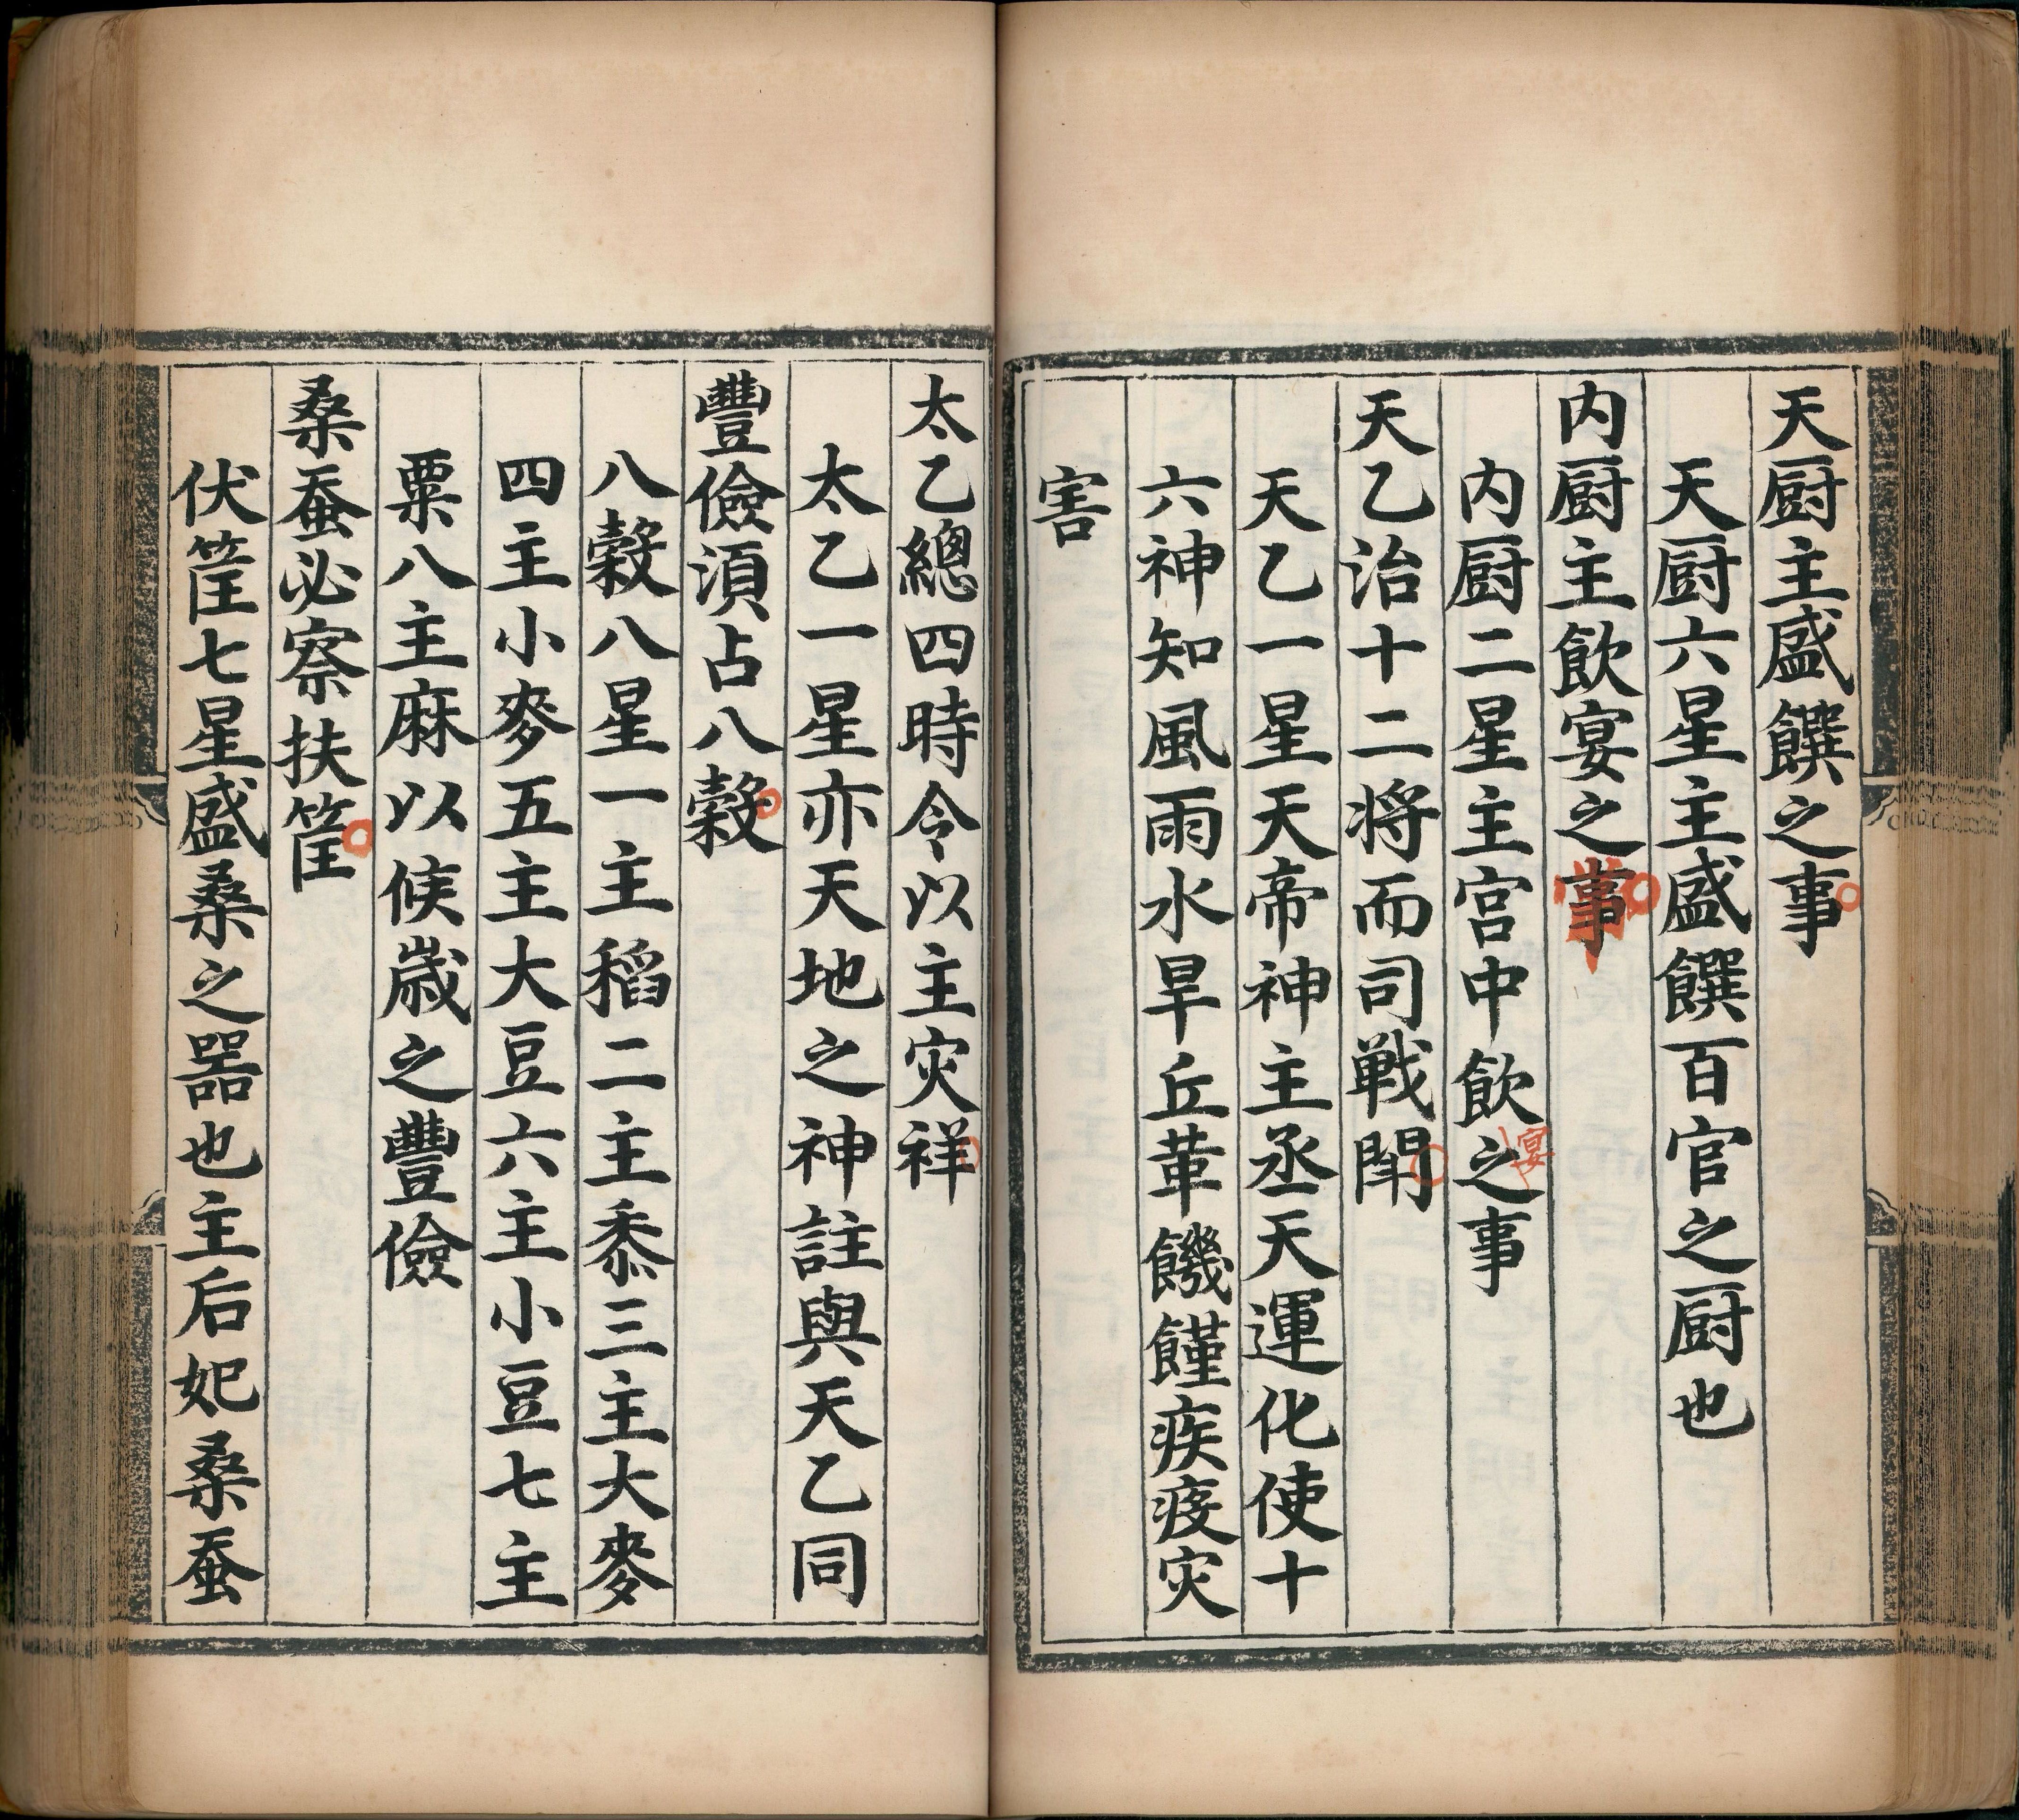 天厨主盛饌之事
天厨六星主盛饌百官之厨也
内厨主飲宴之事
内厨二星主宫中飲宴之事
天乙治十二将而司戦閗
天乙一星天帝神主丞天運化使十
六神知風雨水旱丘革饑饉疾疫灾
害
太乙總四時令以主灾祥
太乙一星亦天地之神註與天乙同
豐儉湏占八糓
八糓八星一主稻二主黍三主大麥
四主小麥五主大豆六主小豆七主
粟八主麻以候歳之豐儉
桑蚕必察扶筐
伏筐七星盛桑之噐也主后妃桑蚕